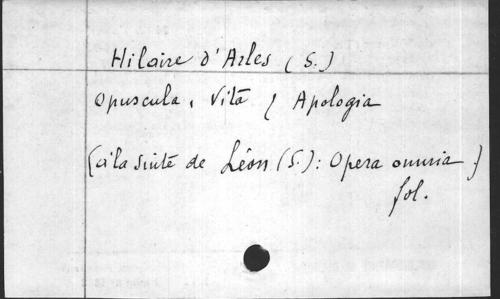 Hilaire d'Arles (S.)
Opuscula, Vita & Apologia
(à la suite de Léon (S.): Opera omnia)
fol.